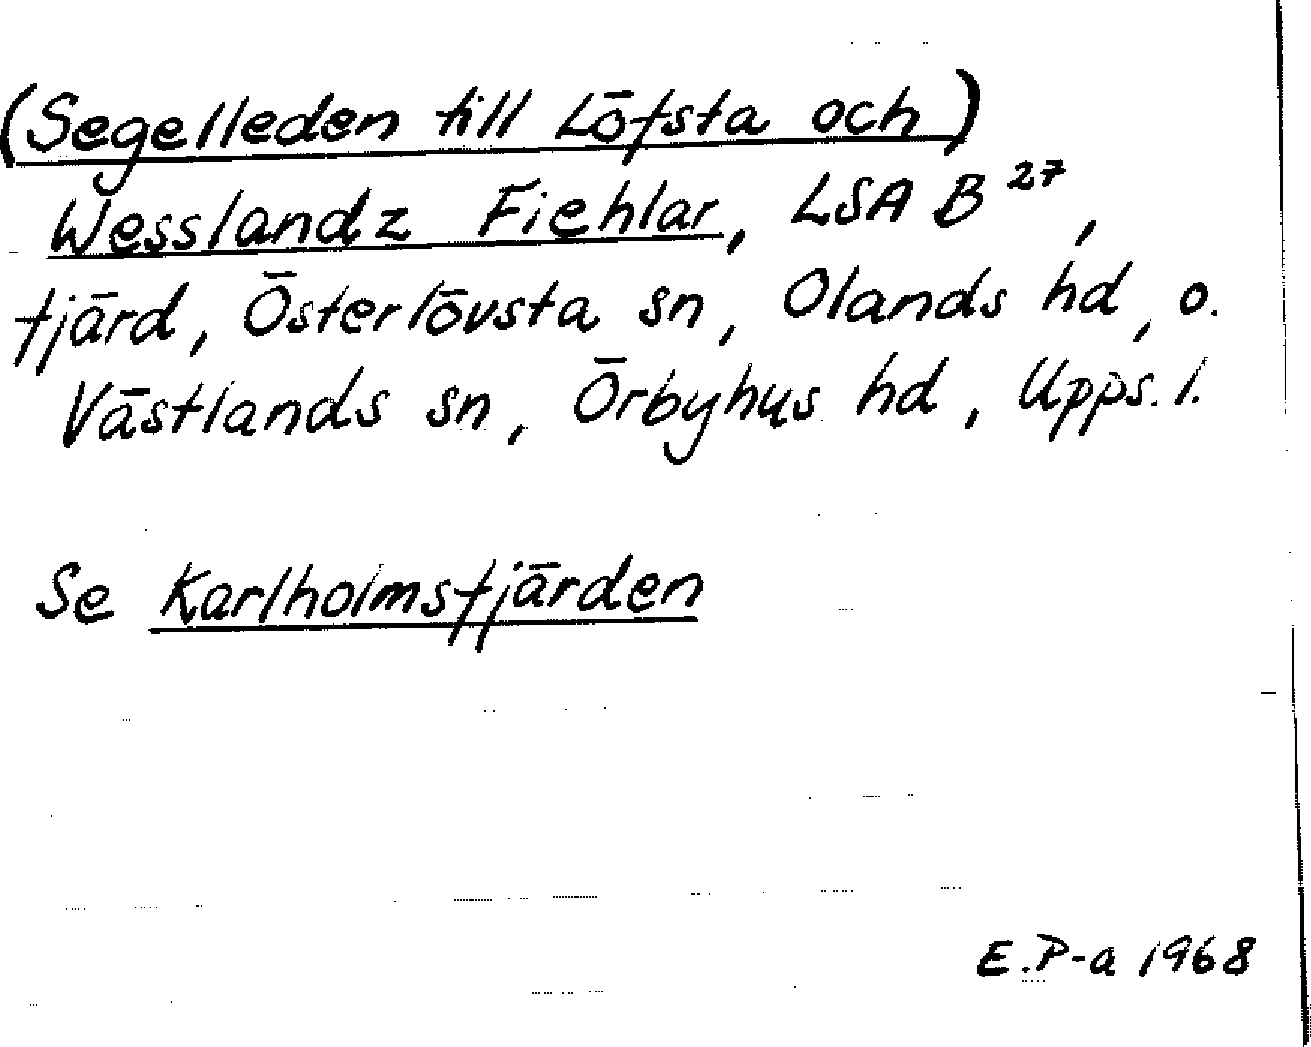 (Segelleden till Löfsta och)
Wesslandz Fiehlar, LSA B 27,
fjärd, Österlövsta sn, Olands hd, o.
Västlands sn, Örbyhus hd, Upps. l.
Se Karlholmsfjärden
E.P-a 1968